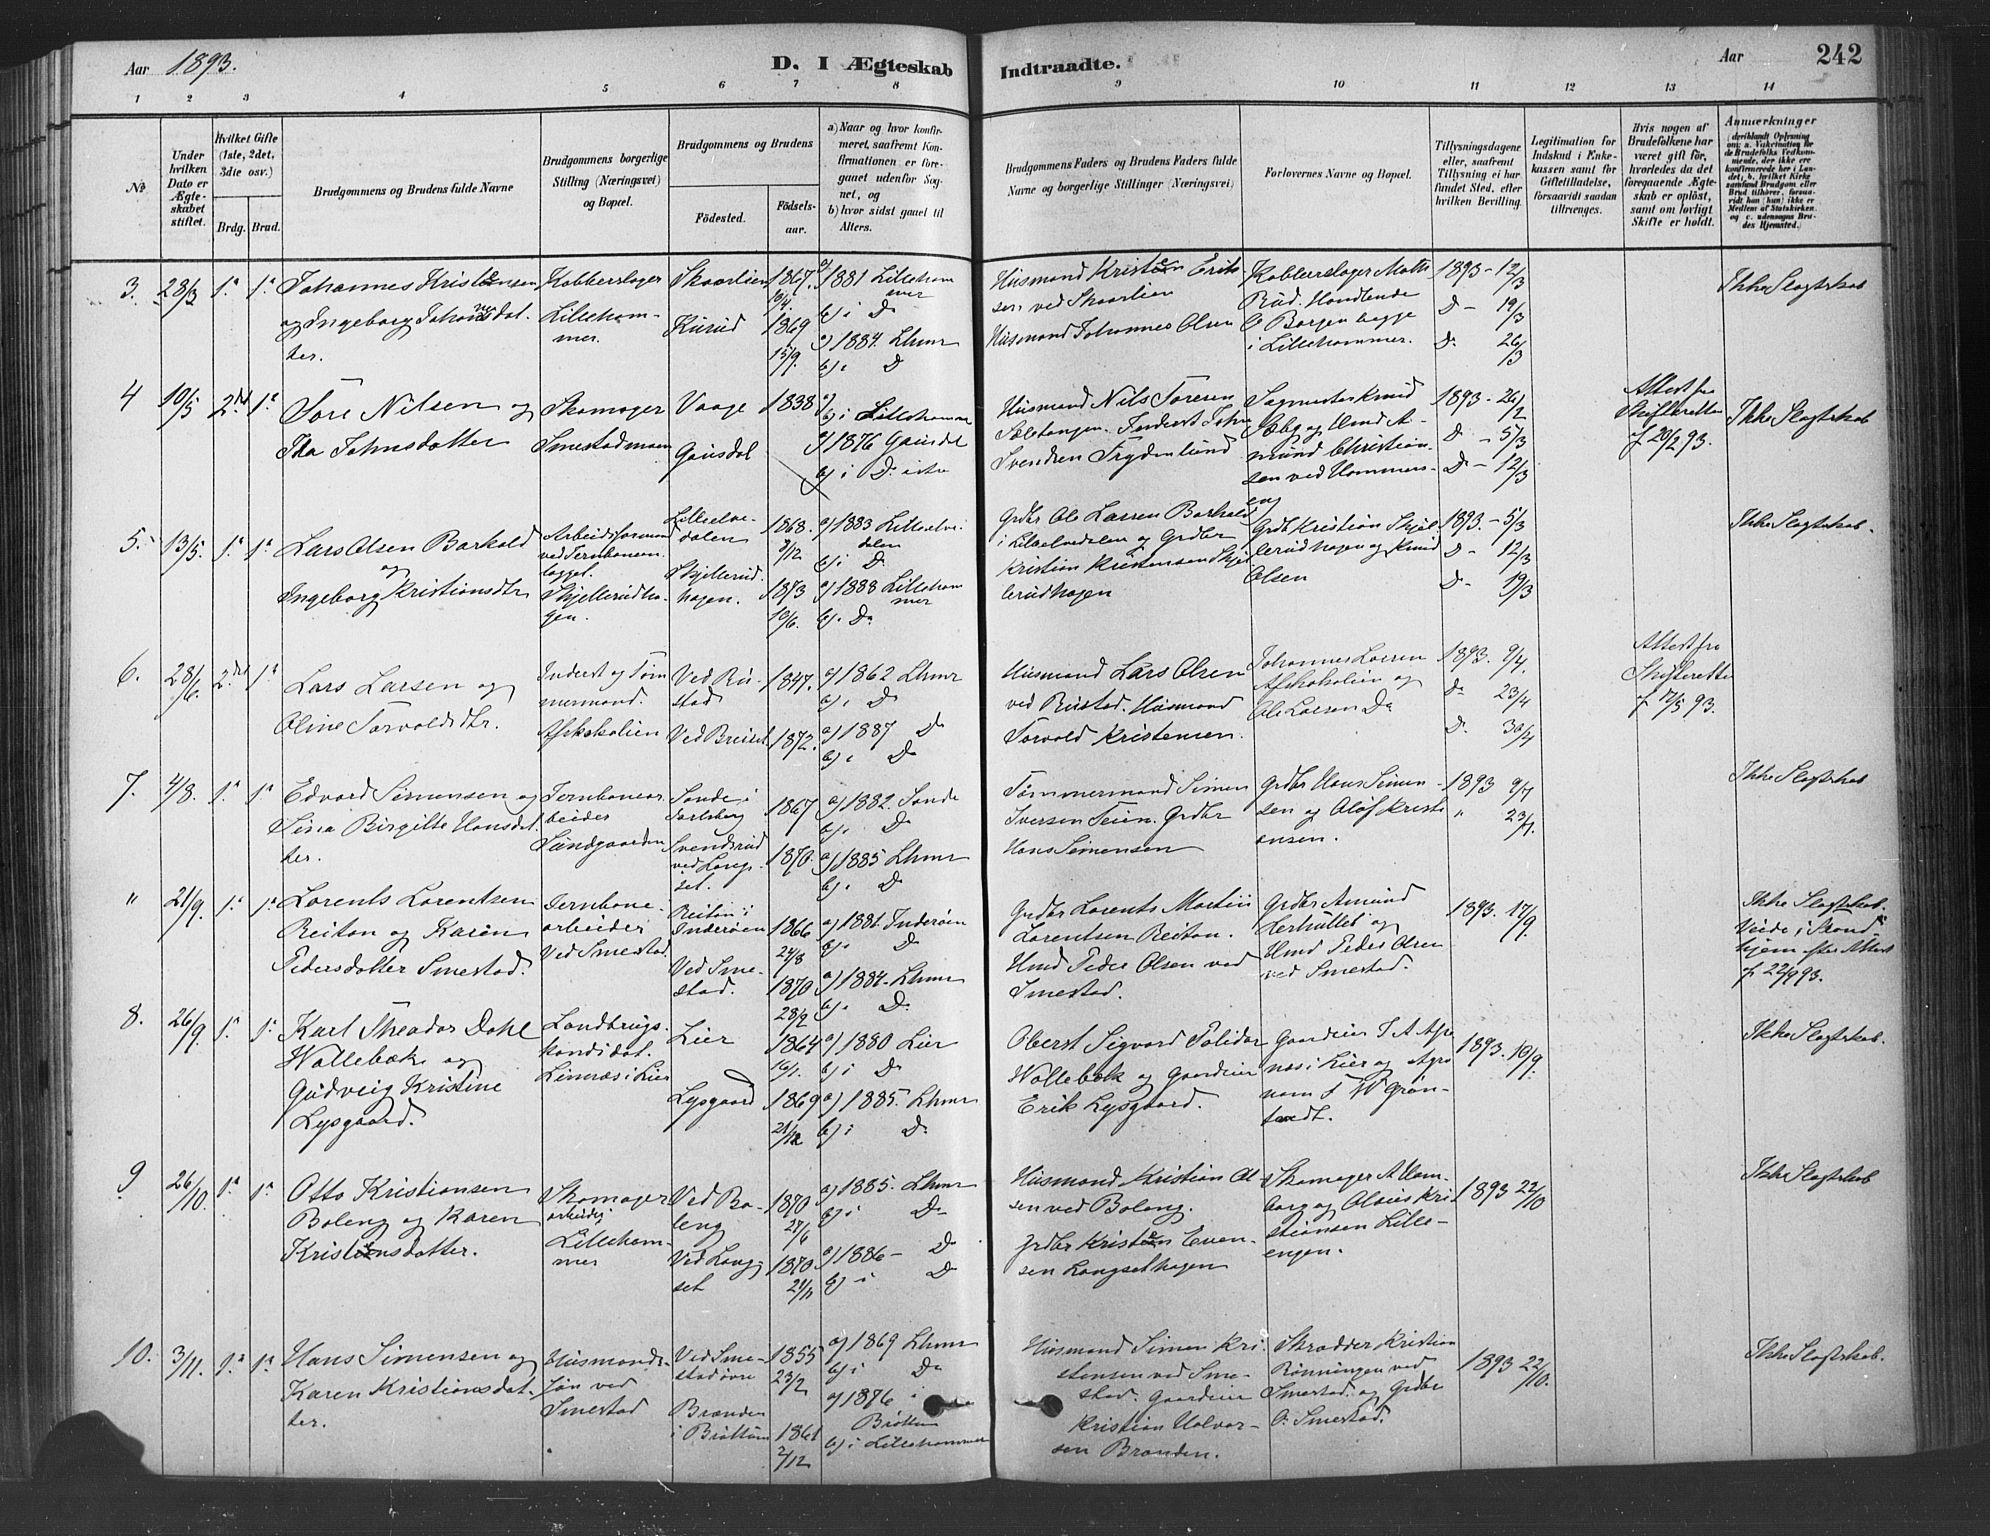 Aar 1893.
D. I Ægteskab Indtraadte.
Aar
242
1 2 3 4 5 6 7 8 9 10 11 12 13 14
No
Under hvilken Dato er Ægteskabet stiftet.
Hvilket Gifte (1ste, 2det, 3die osv.)
Brdg. Brud.
Brudgommens og Brudens fulde Navne
Brudgommens borgerlige Stilling (Næringsvei) og Bopæl.
Brudgommens og Brudens
Födested.
Födsels-aar.
a) Naar og hvor konfirmeret, saafremt Konfirmationen er foregaaet udenfor Sognet, og
b) hvor sidst gaaet til Alters.
Brudgommens Faders og Brudens Faders fulde Navne og borgerlige Stillinger (Næringsvei)
Forlovernes Navne og Bopæl.
Tillysningsdagene eller, saafremt Tillysning ei har fundet Sted, efter hvilken Bevilling.
Legitimation for Indskud i Enkekassen samt for Giftetilladelse, forsaavidt saadan tiltrænges.
Hvis nogen af Brudefolkene har været gift för, hvorledes da det foregaaende Ægteskab er oplöst, samt om lovligt Skifte er holdt.
Anmærkninger
3. 28/3 1ste 1ste
Johannes Kristensen
og Ingeborg Johansdat-
ter.
Kobberslager
Lilleham-
mer.
Skaarlien
Kurud
1867.
10/4
1869
15/9.
a) 1881 Lilleham
mer
b) i Do
a) 1884. Lhmr
b) i Do
Husmand Kristen Erik-
sen ved Skaarlien
Husmand Johannes Olsen
Kobberslager Maths
Rud. Handlende
O Borgen begge
i Lillehammer.
1893 - 12/3
Do - 19/3
Do 26/3
Ikke Slægtskab
4 10/5 2det 1ste
Tore Nilsen og
Ida Johnsdatter
Skomager
Smestadmoen
Vaage
Gausdal
1838
a)
b) i Lillehammer
a) 1876 Gausdal
b) i Do
Husmand Nils Toresen
Inderst John
Svendsen Frydenlund
Sagmester Knud
Christian-
sen ved Hammers-
eng
1893 - 26/2
Do - 5/3
Do - 12/3
Attest fra
Skifteretten
af 20/2 93.
Ikke Slægtskab
5. 13/5. 1ste 1ste
Lars Olsen Barkald
og
Ingeborg Kristiansdtr
Arbeidsformand
ved Jernbanean-
lægget.
Skjellerudha-
gen.
Lilleelve-
dalen
Skjellerud-
hagen.
1868.
3/12
1873
10/6.
a) 1883 Lilleelve-
dalen
b) i Do
a) 1888 Lilleham
mer
b) i Do
Grdbr Ole Larsen Barkald
i Lilleelvedalen og Grdbr
Kristian Kristensen Skjel-
lerudhagen
Grdb Kristian Skjel-
lerudhagen og Knud
Olsen
1893. - 5/3
Do - 12/3
Do - 19/3
Ikke Slægtskab.
6. 28/6. 2det 1ste
Lars Larsen og
Oline Torvaldsdtr.
Inderst og Tøm-
mermand.
Afskakalien
Ved Ru-
stad
Ved Breiset
1847.
1872.
a) 1862 Lhmr
b) i Do
a) 1887 Do
b) i Do
Husmand Lars Olsen
ved Rustad. Husmand
Torvald Kristensen.
Johannes Larsen
Afskakalien og
Ole Larsen Do
1893. 9/4.
Do 23/4
Do. 30/4
Attest fra
Skifteretten
af 12/5 93.
7. 4/8. 1ste 1ste
Edvard Simensen og
Sina Birgitte Hansdat-
ter.
Jernbanear-
beider
Sundgaarden
Sande i
Jarlsberg
Svendsrud
ved Lang-
set.
1867
1870.
a) 1882. Sande
b) i Do
a) 1885 Lhmr
b) i Do
Tømmermand Simen
Iversen Teien. Grdbr
Hans Simensen
Grdbr Hans Simen-
sen og Olaf Kristi-
ansen.
1893 9/7
" 23/7.
Ikke Slægtskab
" 21/9. 1ste 1ste
Lorents Lorentsen
Reitan og Karen
Pedersdatter Smestad.
Jernbane-
arbeider
Ved Smestad.
Reitan i
Inderøen
Ved Sme-
stad.
1866
24/8
1870
28/2
a) 1881. Inderøen
b) i Do
a) 1884. Lhmr
b) i Do
Grdbr Lorents Martin
Lorentsen Reitan.
Hmd Peder Olsen ved
Smestad.
Grdbr Amund
og
Hmd Peder Olsen
ved Smestad.
1893. 17/9.
Ikke Slægtskab.
Viede i Trond-
hjem efter Attest
af 22/9 93.
8. 26/9. 1ste 1ste
Karl Theodor Dahl
Wollebæk og
Gudveig Kristine
Lysgaard.
Landbrugs-
kandidat.
Linnæs i Lier
Lier
Lysgaard
1864
16/1.
1869
21/12
a) 1880 Lier
b) i Do
a) 1885. Lhmr
b) i Do
Oberst Sigvard Polidor
Wollebæk og Gaardeier
Erik Lysgaard.
Gaardeier
i Lier og Agro
nom F W Grøn-
landt.
1893. 10/9.
Ikke Slægtskab.
9 26/10. 1ste 1ste
Otto Kristiansen
Baleng og Karen
Kristensdatter.
Skomager
arbeider
Lilleham-
mer
Ved Ba-
leng
Ved Lang-
set
1870
27/6
1870
21/11
a) 1885. Lhmr
b) i Do
a) 1886 - Do
b) i Do
Husmand Kristian Ol-
sen ved Baleng.
Grdbr Kristen Even-
sen Langsethagen
Skomager A Ham-
borg og Olaus Kri-
stiansen Lille-
engen.
1893 22/10
Ikke Slægtskab
10. 3/11. 1ste 1ste
Hans Simensen og
Karen Kristiansdat-
ter.
Husmands-
søn ved
Smestad
Ved Sme-
stad øvre
Brænden
i Brøttum
1855
23/2
1861
2/12
a) 1869 Lhmr
b) i Do
a) 1876 i
Brøttum
b) i Lillehammer
Husmand Simen Kri-
stensen ved Sme-
stad. Gaardeier
Kristian Halvor-
sen Brænden.
Skrædder Kristian
Rønningen ved
Smestad. og Grdbr
O. Smestad.
1893 22/10.
Ikke Slægtskab.